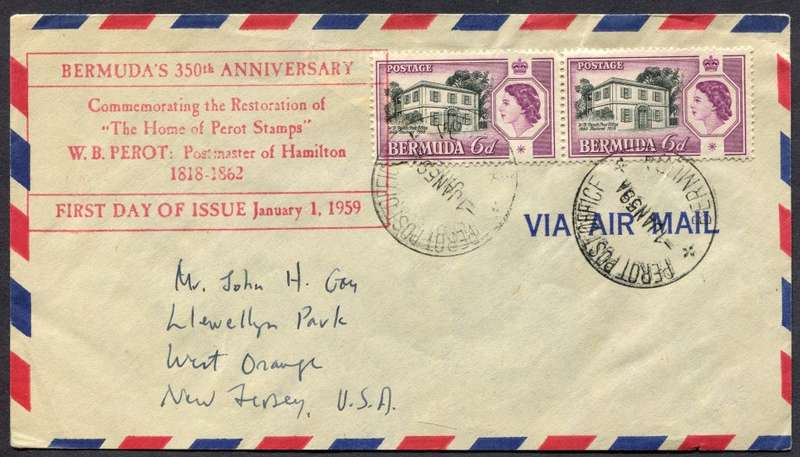 BERMUDA'S 350th ANNIVERSARY
Commemorating the Restoration of
"The Home of Perot Stamps"
W. B. PEROT: Postmaster of Hamilton
1818-1862
FIRST DAY OF ISSUE January 1, 1959
POSTAGE
BERMUDA 6d
POSTAGE
BERMUDA 6d
PEROT POST OFFICE
1 JAN 59
PEROT POST OFFICE
1 JAN 59
BERMUDA
VIA AIR MAIL
Mr. John H.
Llewellyn Park
West Orange
New Jersey, U.S.A.